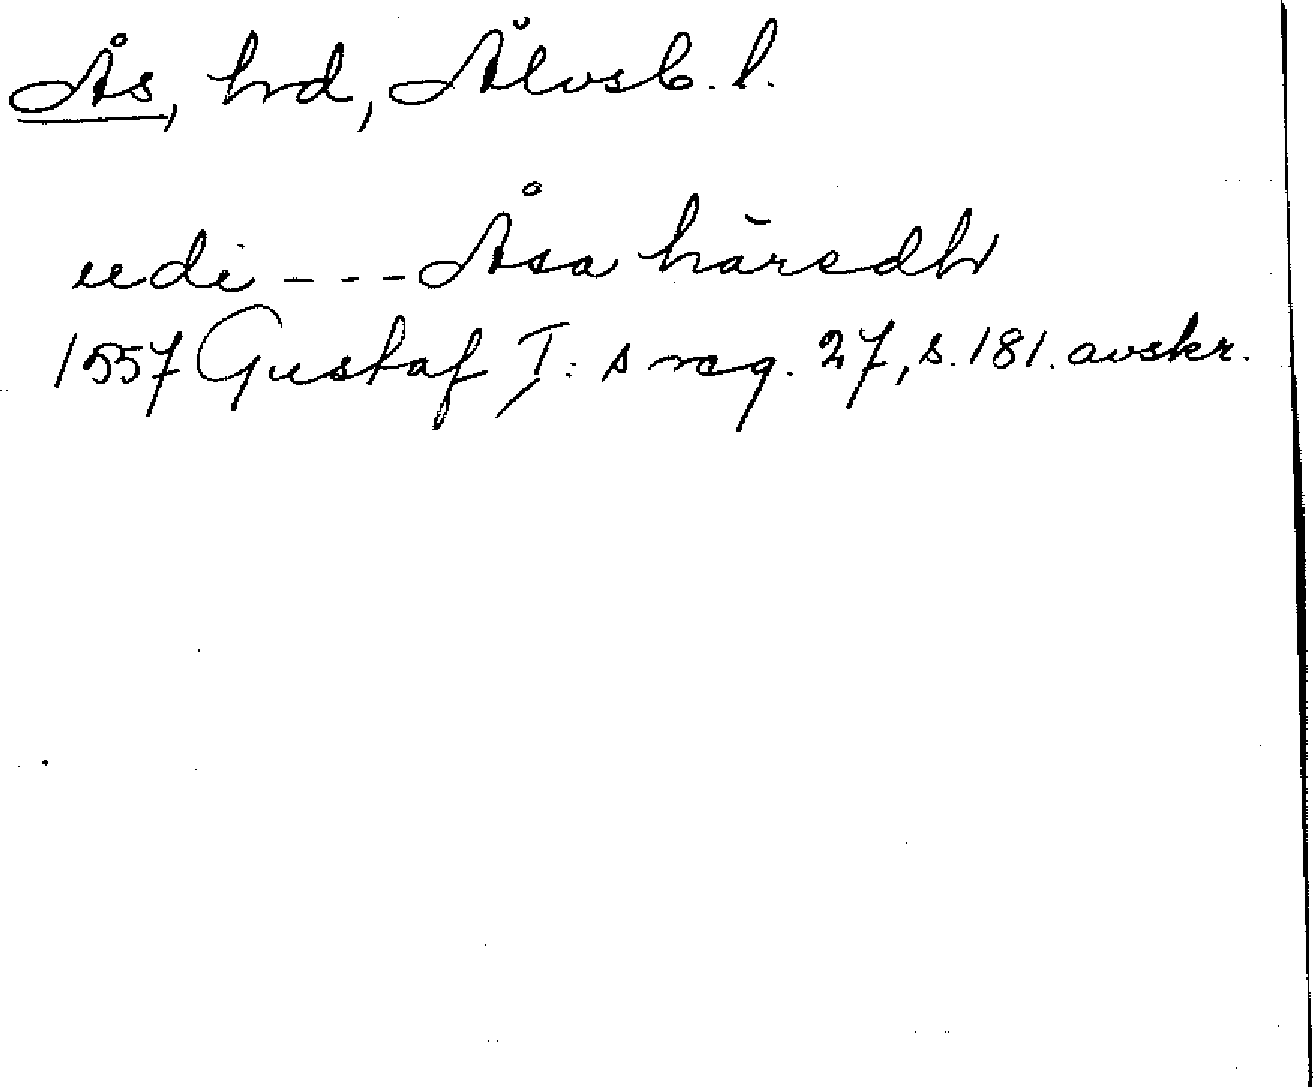 Ås, hd, Älvsb. l.
udi --- Åsa häredh
1557 Gustaf I: s reg. 27, s. 181. avskr.